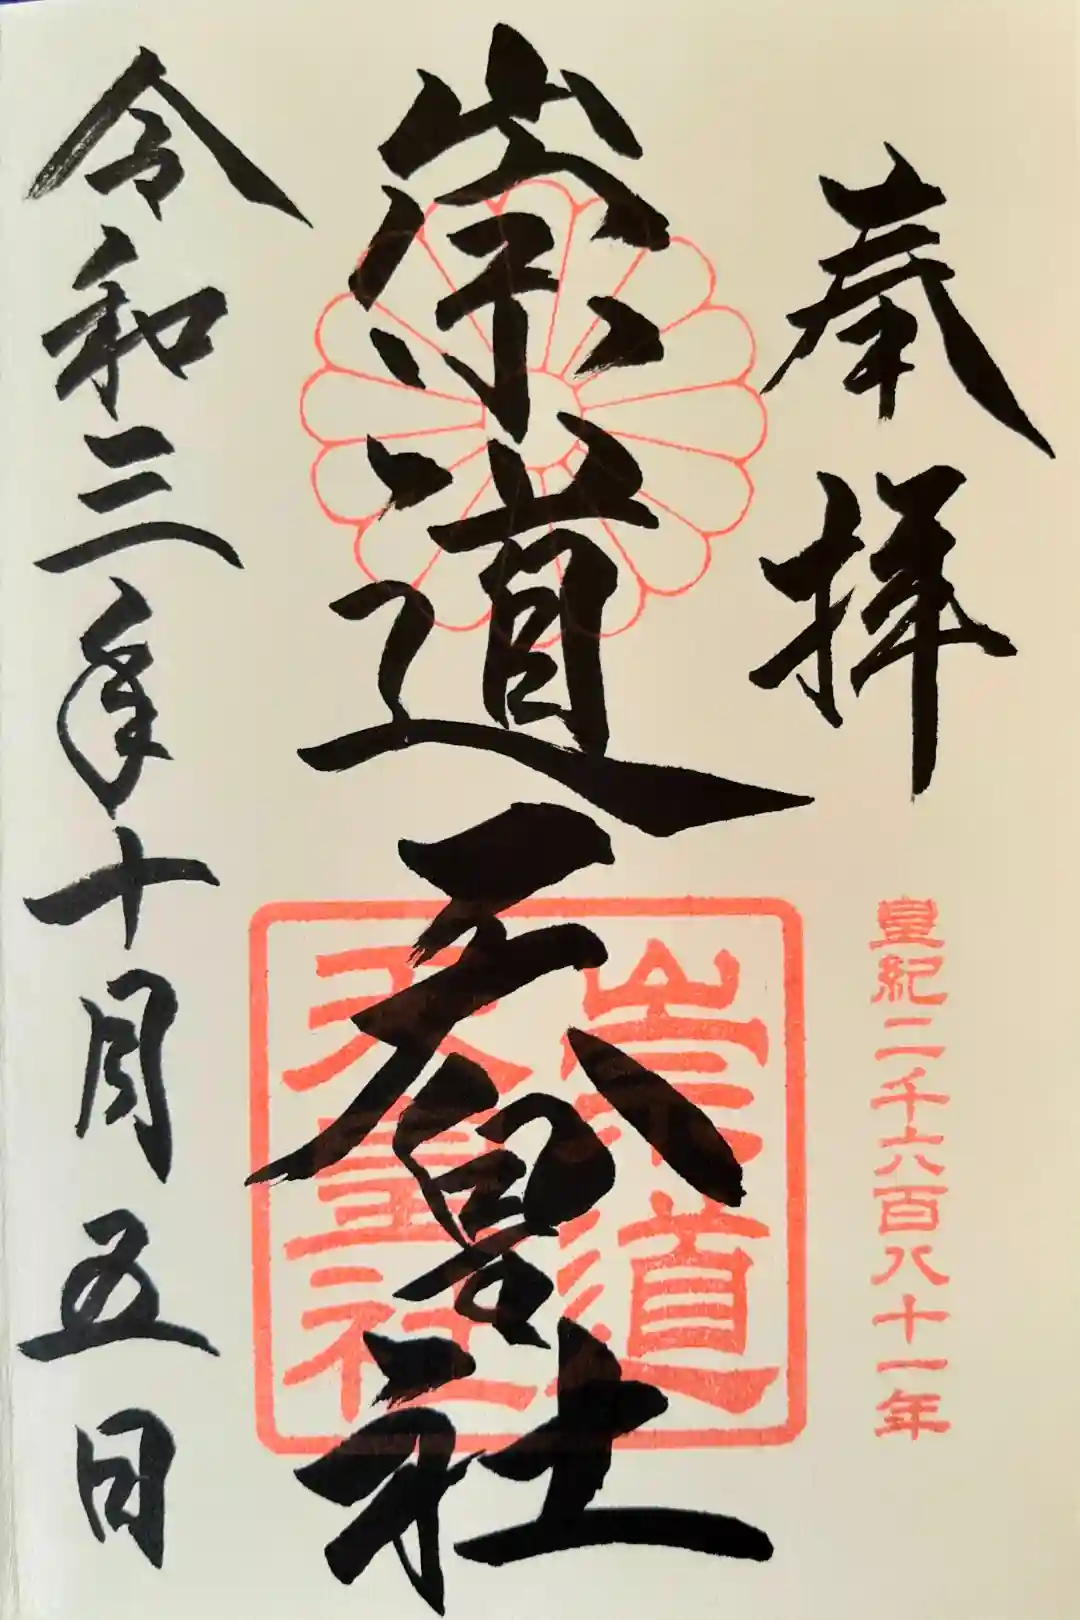 奉拝
皇紀二千六百八十一年
崇道天皇社
崇道
天皇社
令和三年十月五日